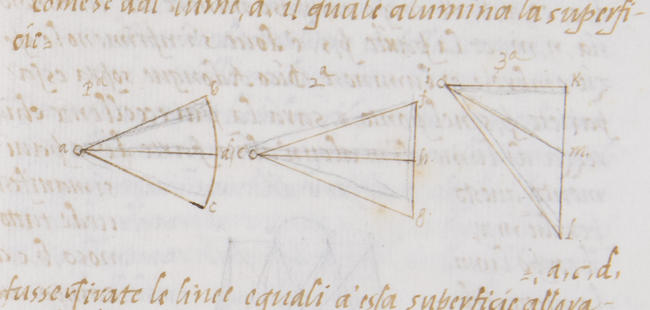 come se dal lume, a, il quale alumina la superfi-
cie
p.ᵃ 2ᵃ 3ᵃ
a b d c
e f h g
i k m l
a, c, d,
fusse tirate le linee equali a' essa superficie allora